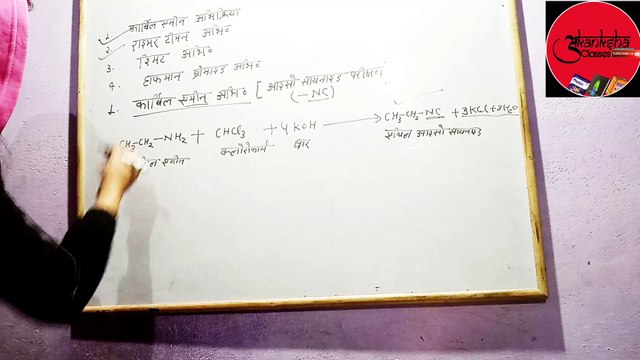 1. कार्बिल एमीन अभिक्रिया
2. राइमर टीमन अभि०
3. रिमर अभि०
4. हाफमान ब्रोमाइड अभि०
1. कार्बिल एमीन अभि० [आइसो सायनाइड परीक्षण]
(-NC)
CH₃-CH₂-NH₂ + CHCl₃ + 4KOH → CH₃-CH₂-NC + 3KCl + 3H₂O
एमीन क्लोरोफार्म क्षार एथिल आइसो सायनाइड
Akanksha
Classes